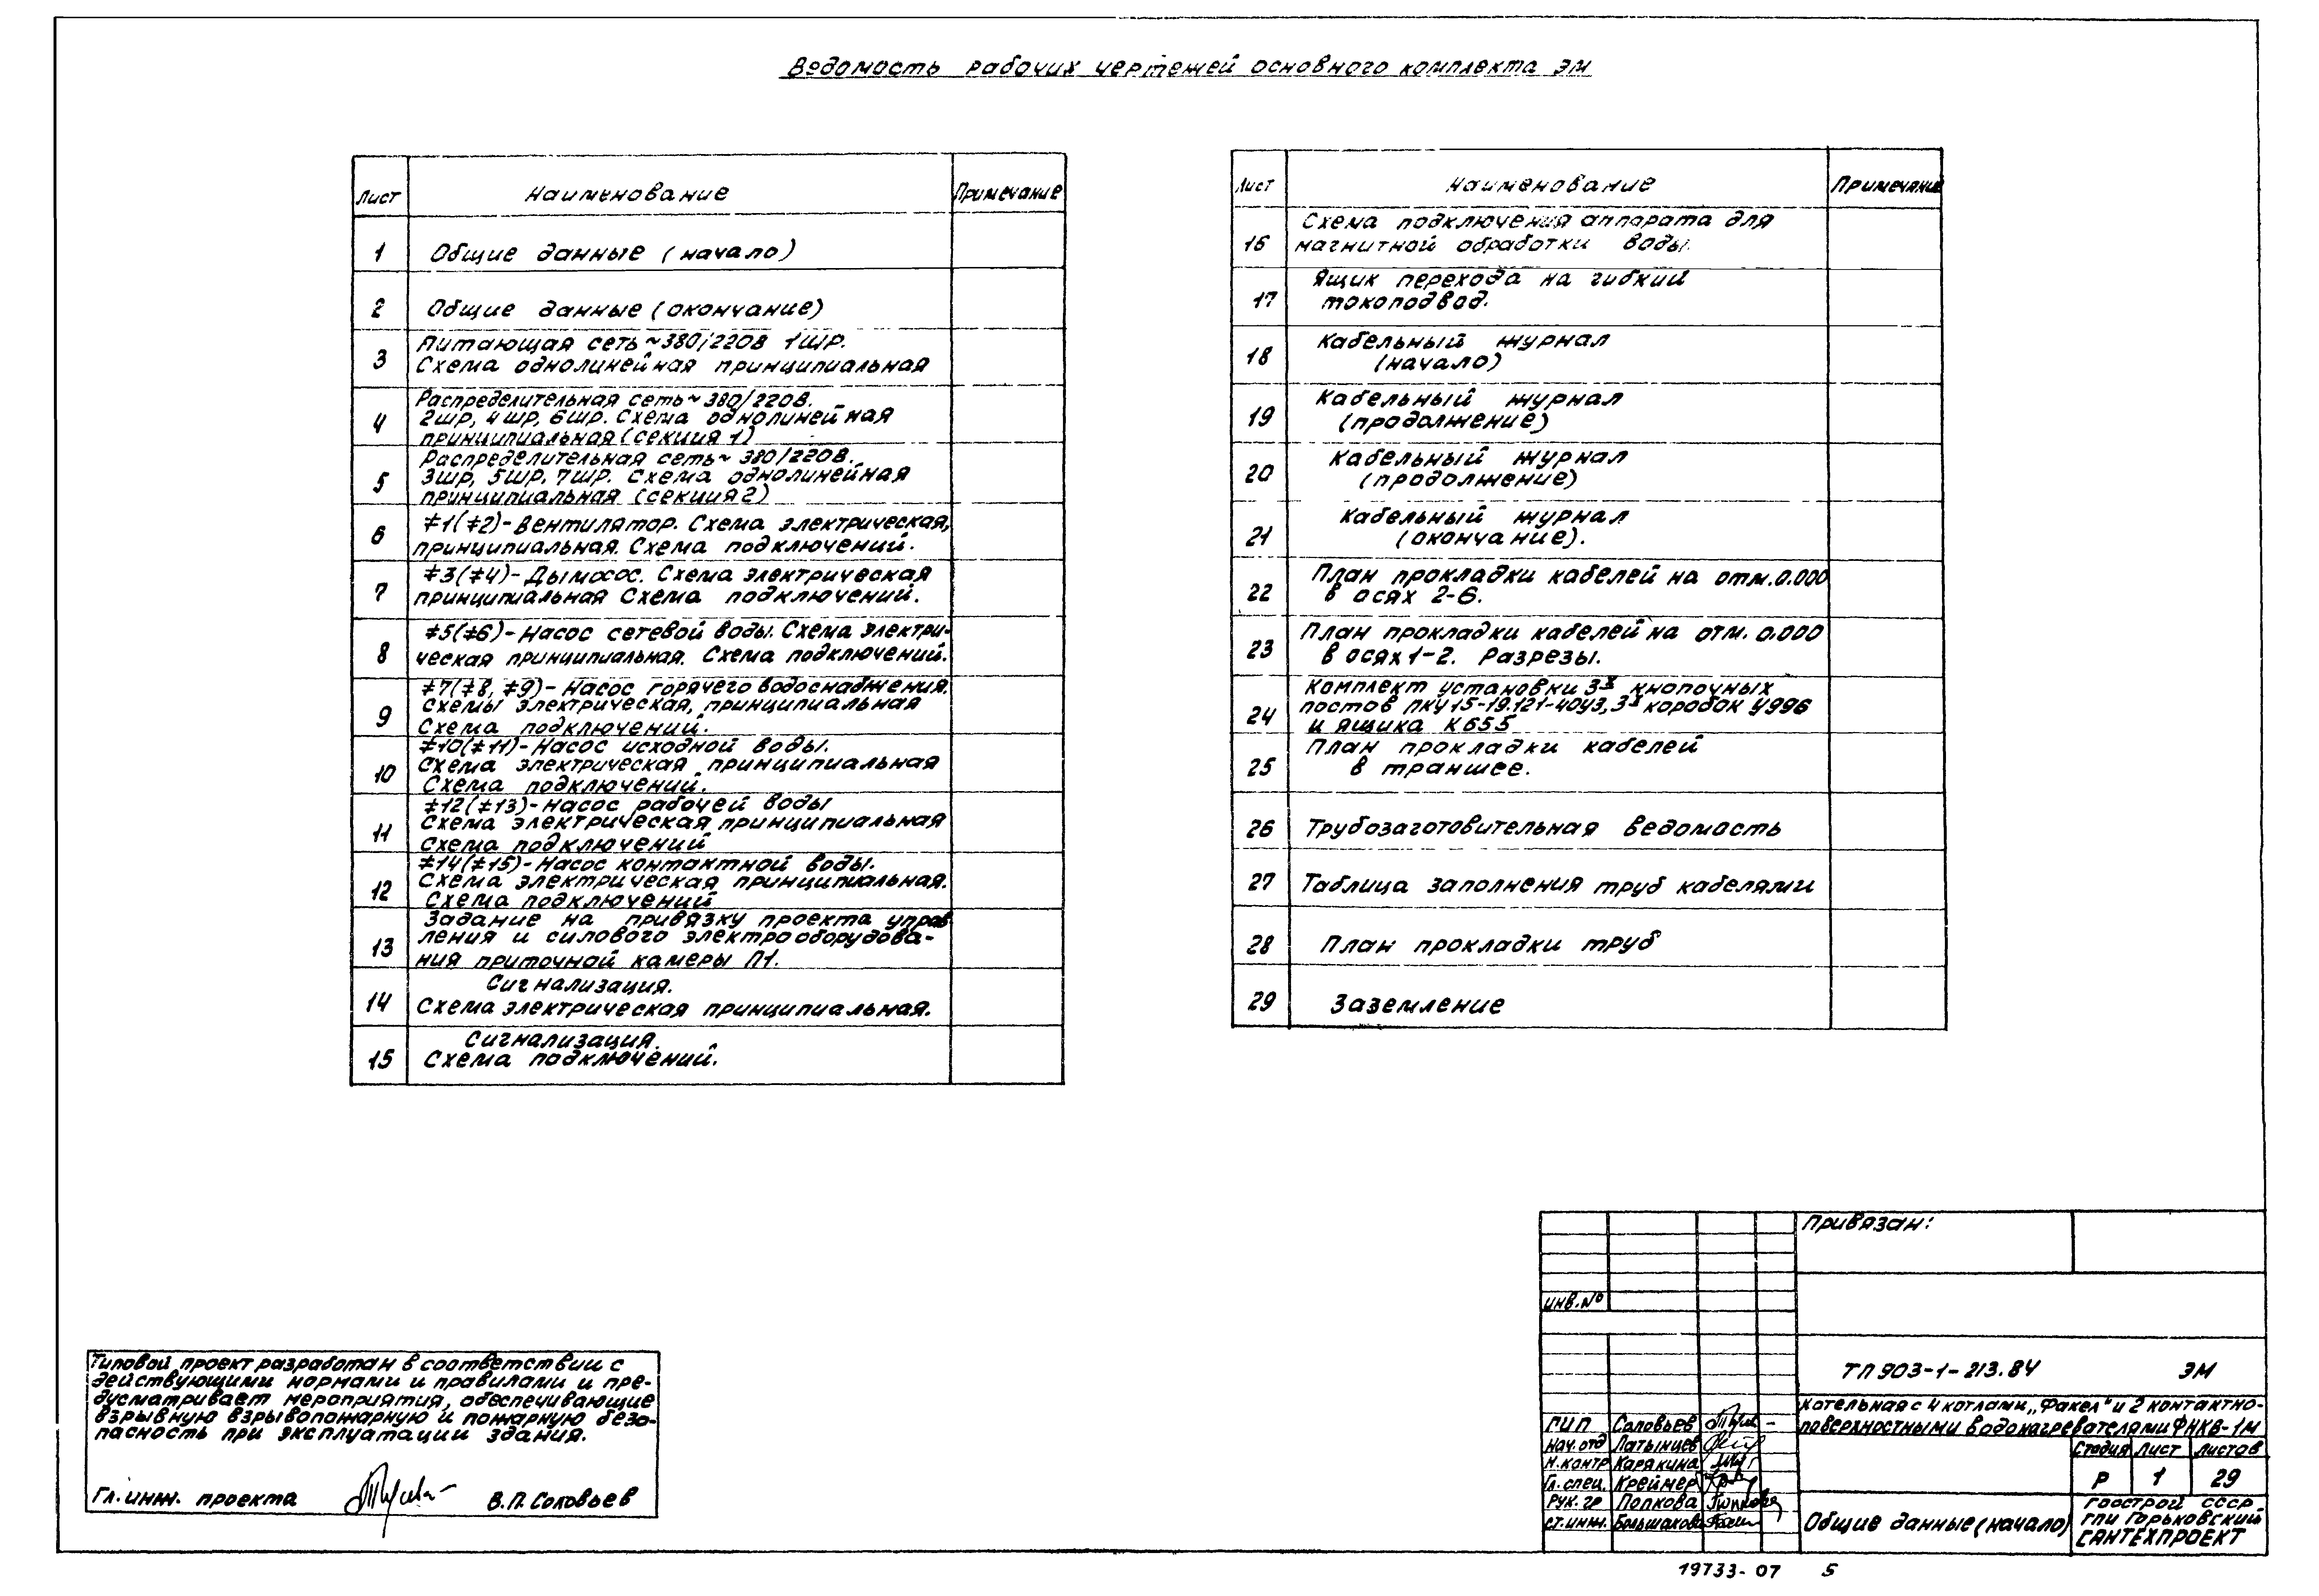 Ведомость рабочих чертежей основного комплекта ЭМ
Лист Наименование Примечание
1 Общие данные (начало)
2 Общие данные (окончание)
3 Питающая сеть ~380/220В 1ШР.
Схема однолинейная принципиальная
4 Распределительная сеть ~ 380/220В.
2ШР, 4ШР, 6ШР. Схема однолинейная
принципиальная (секция 1)
5 Распределительная сеть ~ 380/220В.
3ШР, 5ШР, 7ШР. Схема однолинейная
принципиальная (секция 2)
6 ≠1(≠2)-Вентилятор. Схема электрическая,
принципиальная. Схема подключений.
7 ≠3(≠4)- Дымосос. Схема электрическая
принципиальная Схема подключений.
8 ≠5(≠6)- Насос сетевой воды. Схема электри-
ческая принципиальная. Схема подключений.
9 ≠7(≠8, ≠9)- Насос горячего водоснабжения.
Схемы электрическая, принципиальная
Схема подключений.
10 ≠10(≠11)- Насос исходной воды.
Схема электрическая принципиальная
Схема подключений.
11 ≠12(≠13)-Насос рабочей воды
Схема электрическая принципиальная
Схема подключений
12 ≠14(≠15)-Насос контактной воды.
Схема электрическая принципиальная.
Схема подключений
13 Задание на привязку проекта управ
ления и силового электрооборудова-
ния приточной камеры П1.
14 Сигнализация.
Схема электрическая принципиальная.
15 Сигнализация.
Схема подключений.
Лист Наименование Примечание
16 Схема подключения аппарата для
магнитной обработки воды.
17 Ящик перехода на гибкий
токоподвод.
18 Кабельный журнал
(начало)
19 Кабельный журнал
(продолжение)
20 Кабельный журнал
(продолжение)
21 Кабельный журнал
(окончание).
22 План прокладки кабелей на отм.0.000
в осях 2-6.
23 План прокладки кабелей на отм. 0.000
в осях 1-2. Разрезы.
24 Комплект установки 3х кнопочных
постов ПКУ15-19.121-40У3, 3х коробок У996
и ящика К655
25 План прокладки кабелей
в траншее.
26 Трубозаготовительная ведомость
27 Таблица заполнения труб кабелями
28 План прокладки труб
29 Заземление
Типовой проект разработан в соответствии с
действующими нормами и правилами и пре-
дусматривает мероприятия, обеспечивающие
взрывную взрывопожарную и пожарную безо-
пасность при эксплуатации здания.
Гл. инж. проекта В.П. Соловьев
Привязан:
инв.№
ТП 903-1-213.84 ЭМ
Котельная с 4 котлами „Факел" и 2 контактно-
поверхностными водонагревателями ФНКВ-1М
ГИП Соловьев
Нач. отд Латынцев
Н. контр Карякина
Гл. спец. Креймер
Рук. гр Попкова
Ст. инж. Большакова
Стадия Лист Листов
Р 1 29
Общие данные (начало)
Госстрой СССР
ГПИ Горьковский
САНТЕХПРОЕКТ
19733-07 5